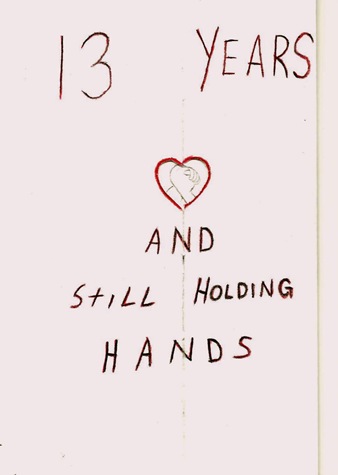 13 YEARS
AND
StiLL HOLDING
HANDS